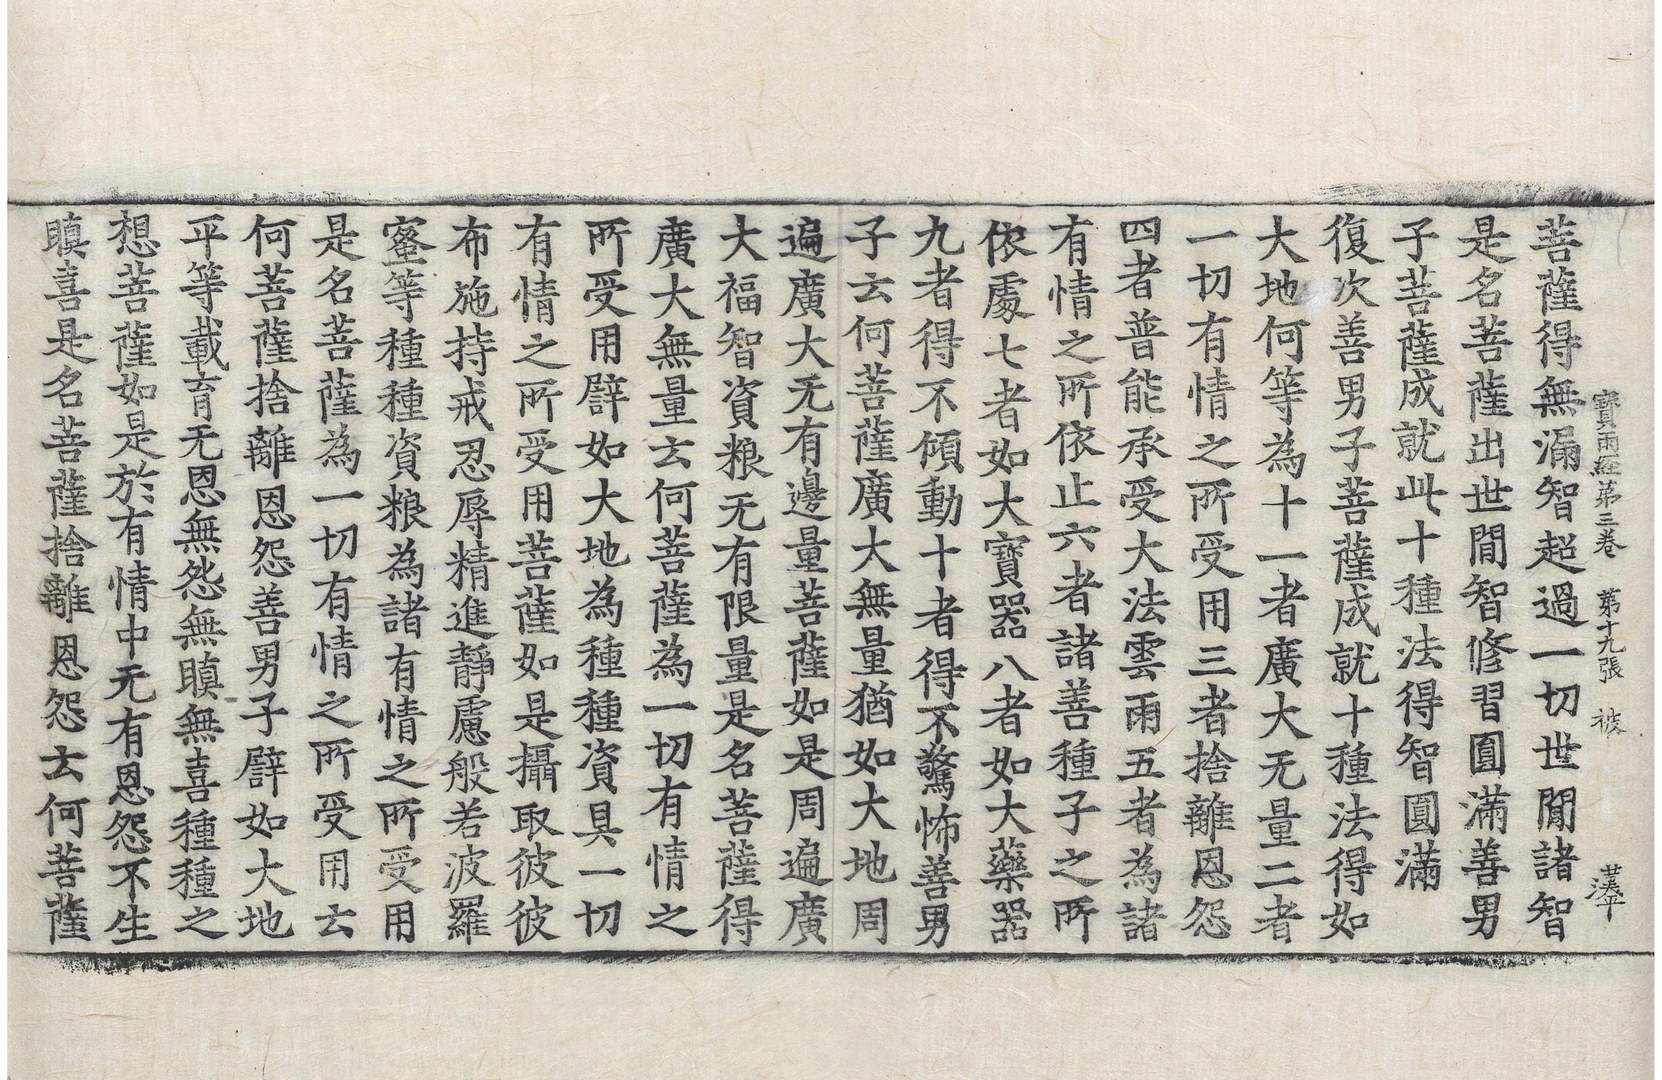 寶雨経第三卷 第十九張 被
菩薩得無漏智超過一切世閒諸智
是名菩薩出世閒智修習圓滿善男
子菩薩成就此十種法得智圓滿
復次善男子菩薩成就十種法得如
大地何等為十一者廣大无量二者
一切有情之所受用三者捨離恩怨
四者普能承受大法雲雨五者為諸
有情之所依止六者諸善種子之所
依處七者如大寶器八者如大藥器
九者得不傾動十者得不驚怖善男
子云何菩薩廣大無量猶如大地周
遍廣大无有邊量菩薩如是周遍廣
大福智資粮无有限量是名菩薩得
廣大無量云何菩薩為一切有情之
所受用譬如大地為種種資具一切
有情之所受用菩薩如是攝取彼彼
布施持戒忍辱精進靜慮般若波羅
蜜等種種資粮為諸有情之所受用
是名菩薩為一切有情之所受用云
何菩薩捨離恩怨善男子譬如大地
平等載育无恩無怨無瞋無喜種種之
想菩薩如是於有情中无有恩怨不生
瞋喜是名菩薩捨離恩怨云何菩薩